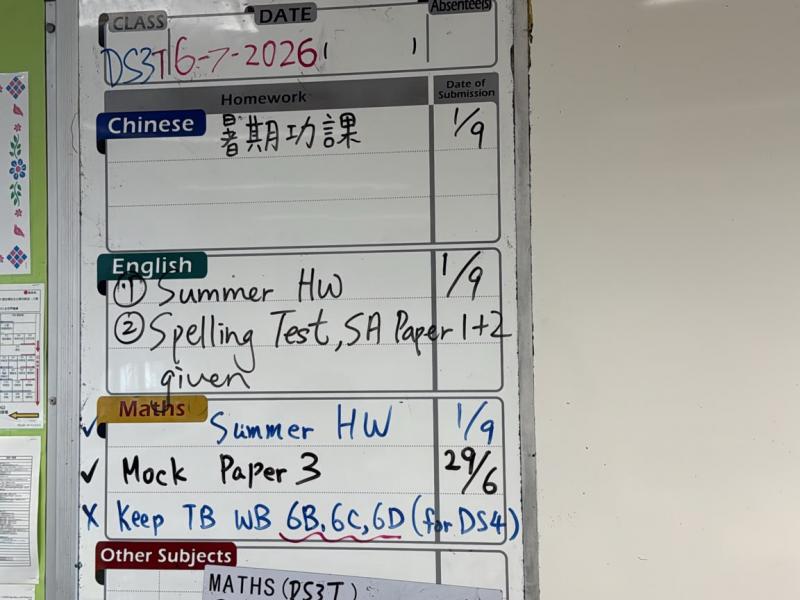 CLASS DATE Absentee(s)
DS3T 6-7-2026 ( )
Homework Date of Submission
Chinese 暑期功課 1/9
English
① Summer HW 1/9
② Spelling Test, SA Paper 1+2
given
Maths
✓ Summer HW 1/9
✓ Mock Paper 3 29/6
X Keep TB WB 6B, 6C, 6D (for DS4)
Other Subjects
MATHS (DS3T)